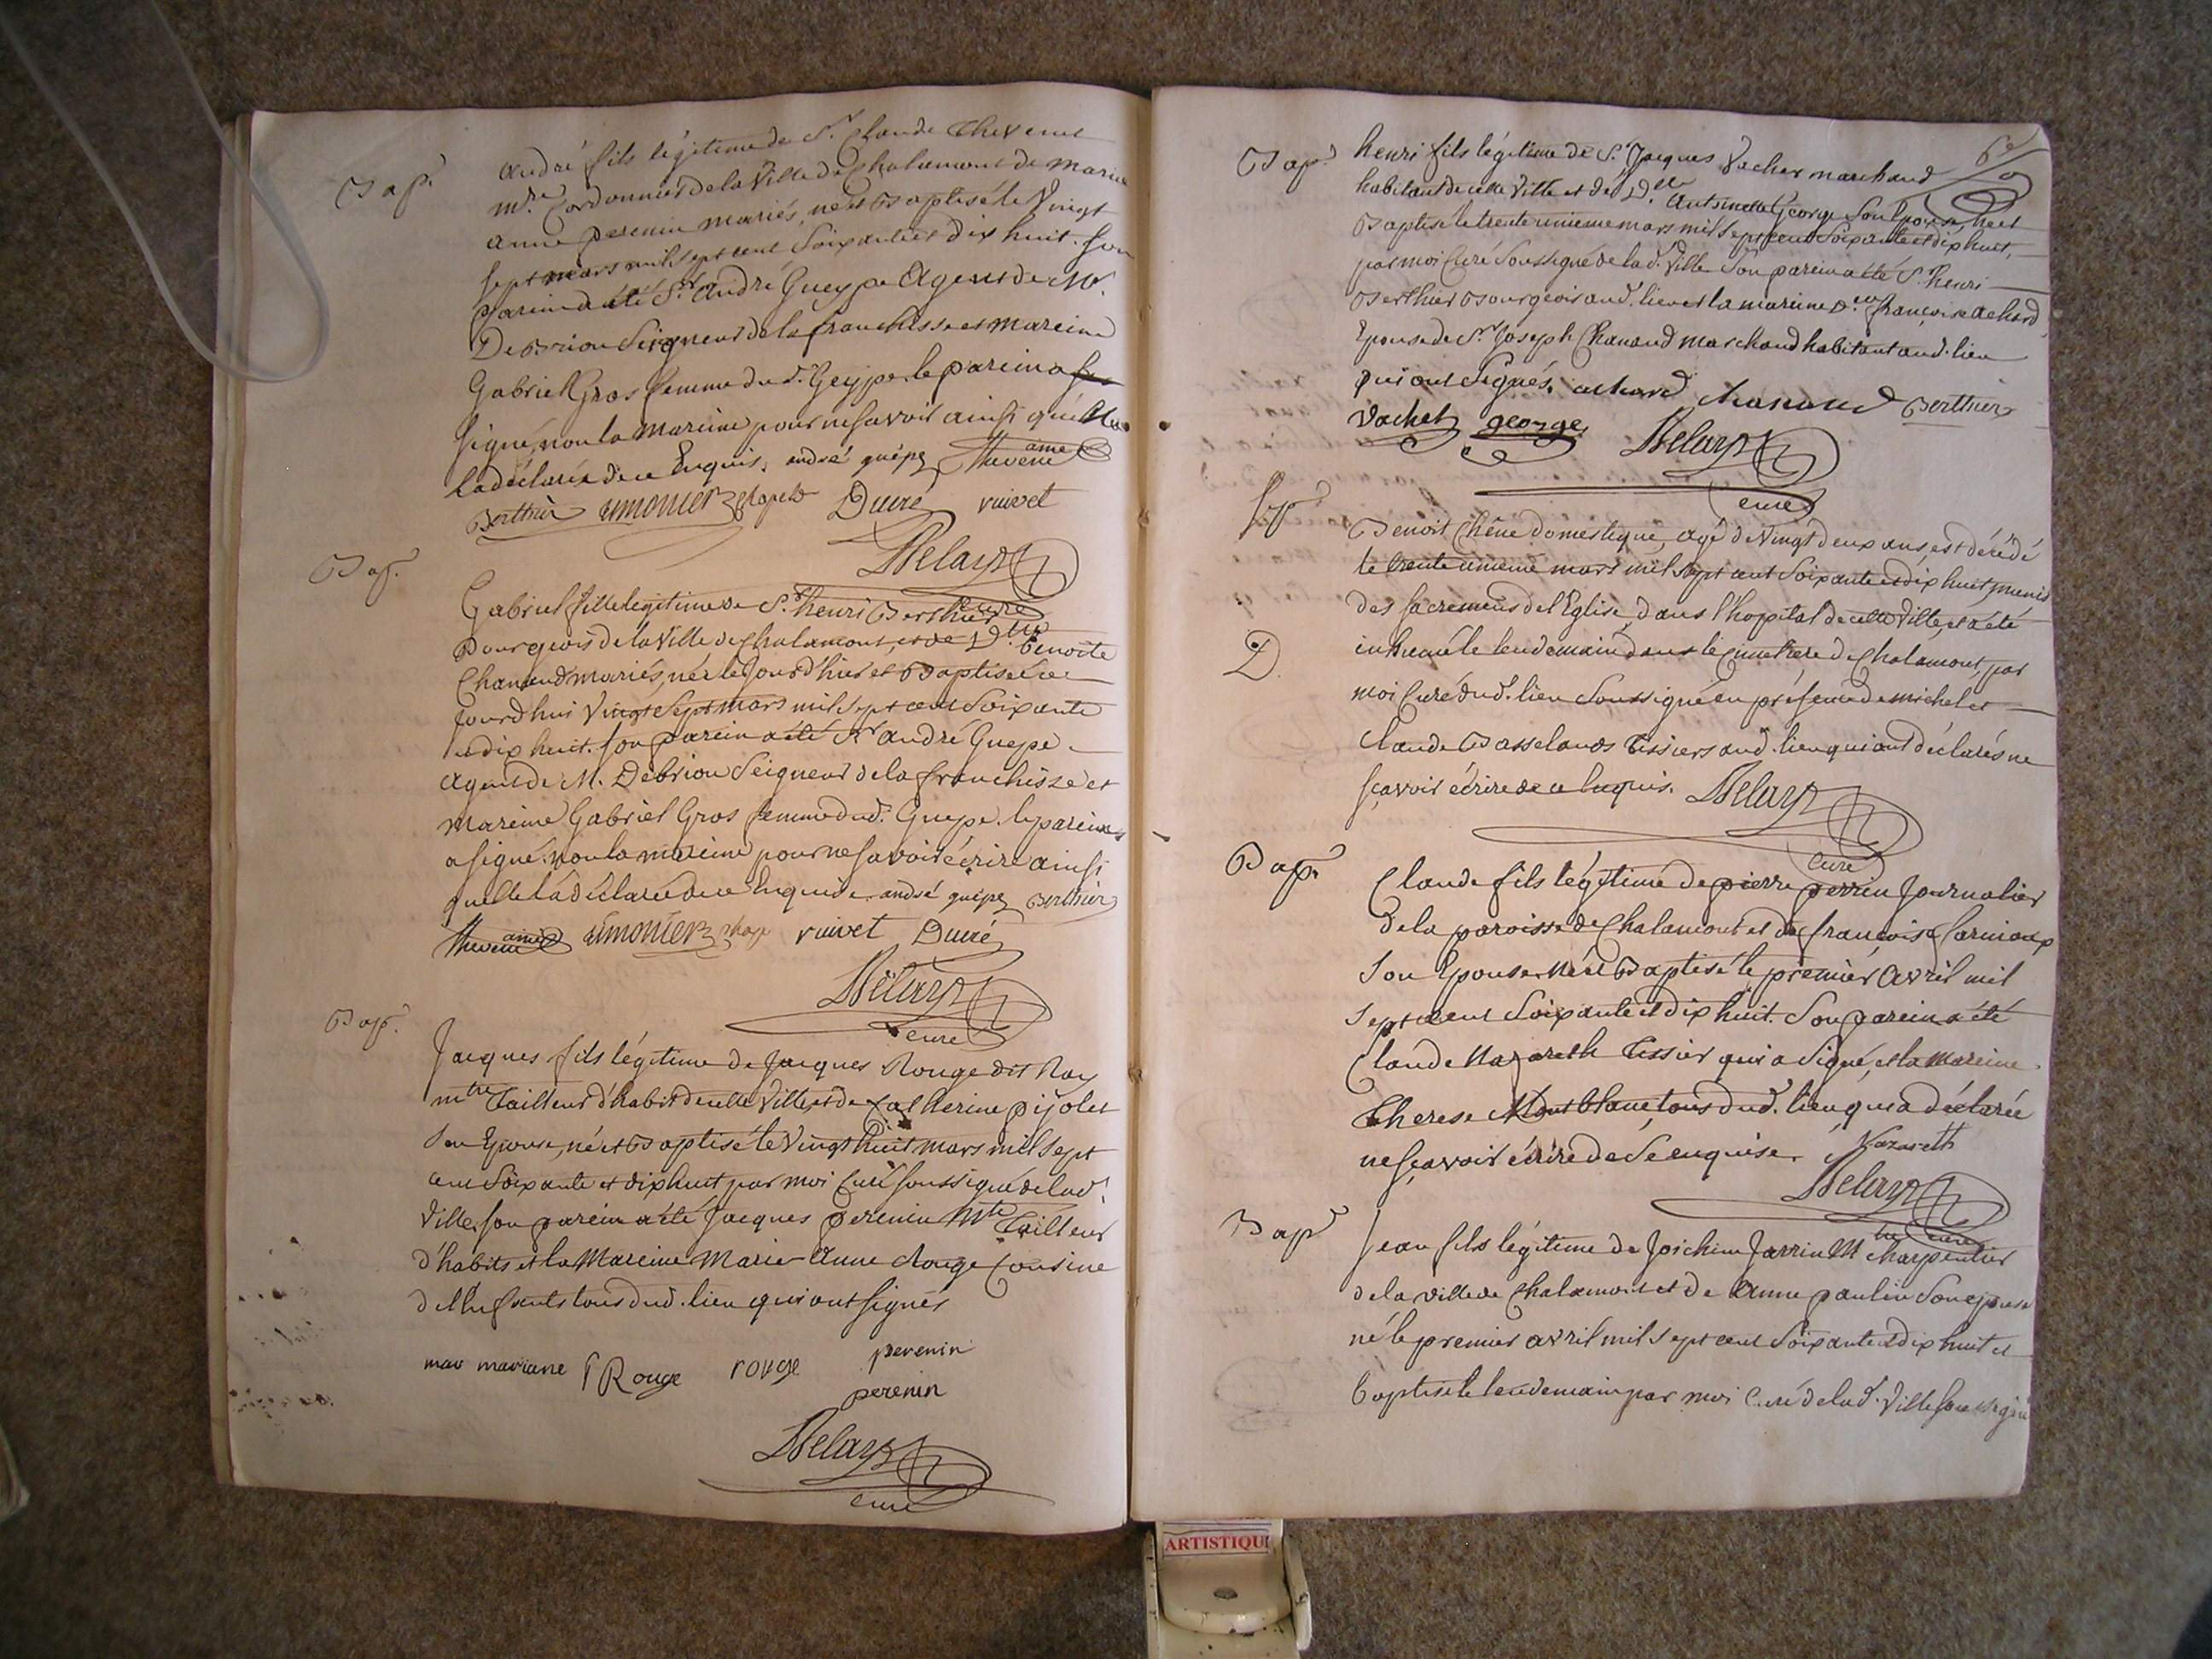 Bap.
André fils légitime de Sr. Claude Thevenet
mtre. Cordonnier de la Ville de Chalamont de Marie
anne perenin mariés, né et Baptisé le Vingt
sept mars mil sept cent Soixante et dix huit. son
parein a été Sr. André Gueype Agent de Mr.
De Brion Seigneur de la franchisse et mareine
Gabriel Gros femme dud. Geype. le parein a
signé, non la mareine pour ne savoir ainsi qu'elle
la déclaré de ce Enquis. andré guépe Thevene aine
Berthier simonier chapel Ducré vuivet
Delays
curé
Bap.
Gabriel fille légitime de Sr. henri Berthier
Bourgeois de la Ville de Chalamont, et de Dlle Benoite
Chanaud mariés, née le Jour d'hier et Baptisée ce
Jourd'hui Vingt Sept mars mil Sept cent Soixante
et dix huit. son parein a été Sr andré Guepe
agent de M. Debrion Seigneur de la franchisse et
mareine Gabriel Gros femme dud. Guepe. le parein
a signé. non la mareine pour ne savoir écrire ainsi
quelle la déclarée de ce Enquise. andré guépe Berthier
Thevene ainé simonier chape vuivet Ducré
Delays
curé
Bap.
Jacques fils légitime de Jacques Rouge dit Ray
mtre Tailleur d'habit de cette Ville, et de Catherine pijolet
son Epouse, né et Baptisé le Vingt huit mars mil Sept
cent Soixante et dix huit par moi Curé soussigné de lad.
Ville, son parein a été Jacques perenin Mtre Tailleur
d'habits et la Mareine Marie Anne Rouge Cousine
de l'Enfant tous dud. lieu qui ont signés
mav mariane Rouge rouge perenin
perenin
Delays
curé
Bap.
henri fils légitime de Sr. Jacques Vacher marchand
habitant de cette Ville et de Dlle. Antoinette George Son Epouse, né et
Baptisé le trente unieme mars mil Sept cent Soixante et dix huit,
par moi Curé Soussigné de lad. Ville Son parein a été Sr. henri
Berthier Bourgeois aud. lieu et la mareine françoise achard
Epouse de Sr. Joseph Chanaud marchand habitant aud. lieu
qui ont Signés. achard chanaud Berthier
Vachet george Delays
curé
Benoit Chêne Domestique, agé de Vingt deux ans, est décédé
le trente unieme mars mil Sept cent Soixante et dix huit, munis
des sacremens de l'Eglise, dans l'hopital de cette Ville, et a été
D.
inhumé le lendemain dans le Cimetiere de Chalamont, par
moi Curé dud. lieu Soussigné en présence de michel et
Claude Basselands Tissiers aud. lieu qui ont déclarés ne
sçavoir écrire de ce Enquis. Delays
Curé
Bap.
Claude fils légitime de pierre perrin Journalier
de la paroisse de Chalamont et de françoise
Son Epouse né et Baptisé le premier avril mil
Sept cent Soixante et dix huit. Son parein a été
Claude Nazareth Tissier qui a Signé, et la mareine
Therese Montblanc, tous dud. lieu qui a déclarée
ne sçavoir écrire de ce enquise. Nazareth
Delays
curé
Bap.
Jean fils légitime de Joichim Jarrin Mtre Charpentier
de la Ville de Chalamont et de Anne paulin Son epouse
né le premier avril mil Sept cent Soixante et dix huit et
baptisé le lendemain par moi Curé de lad. Ville soussigné
ARTISTIQU